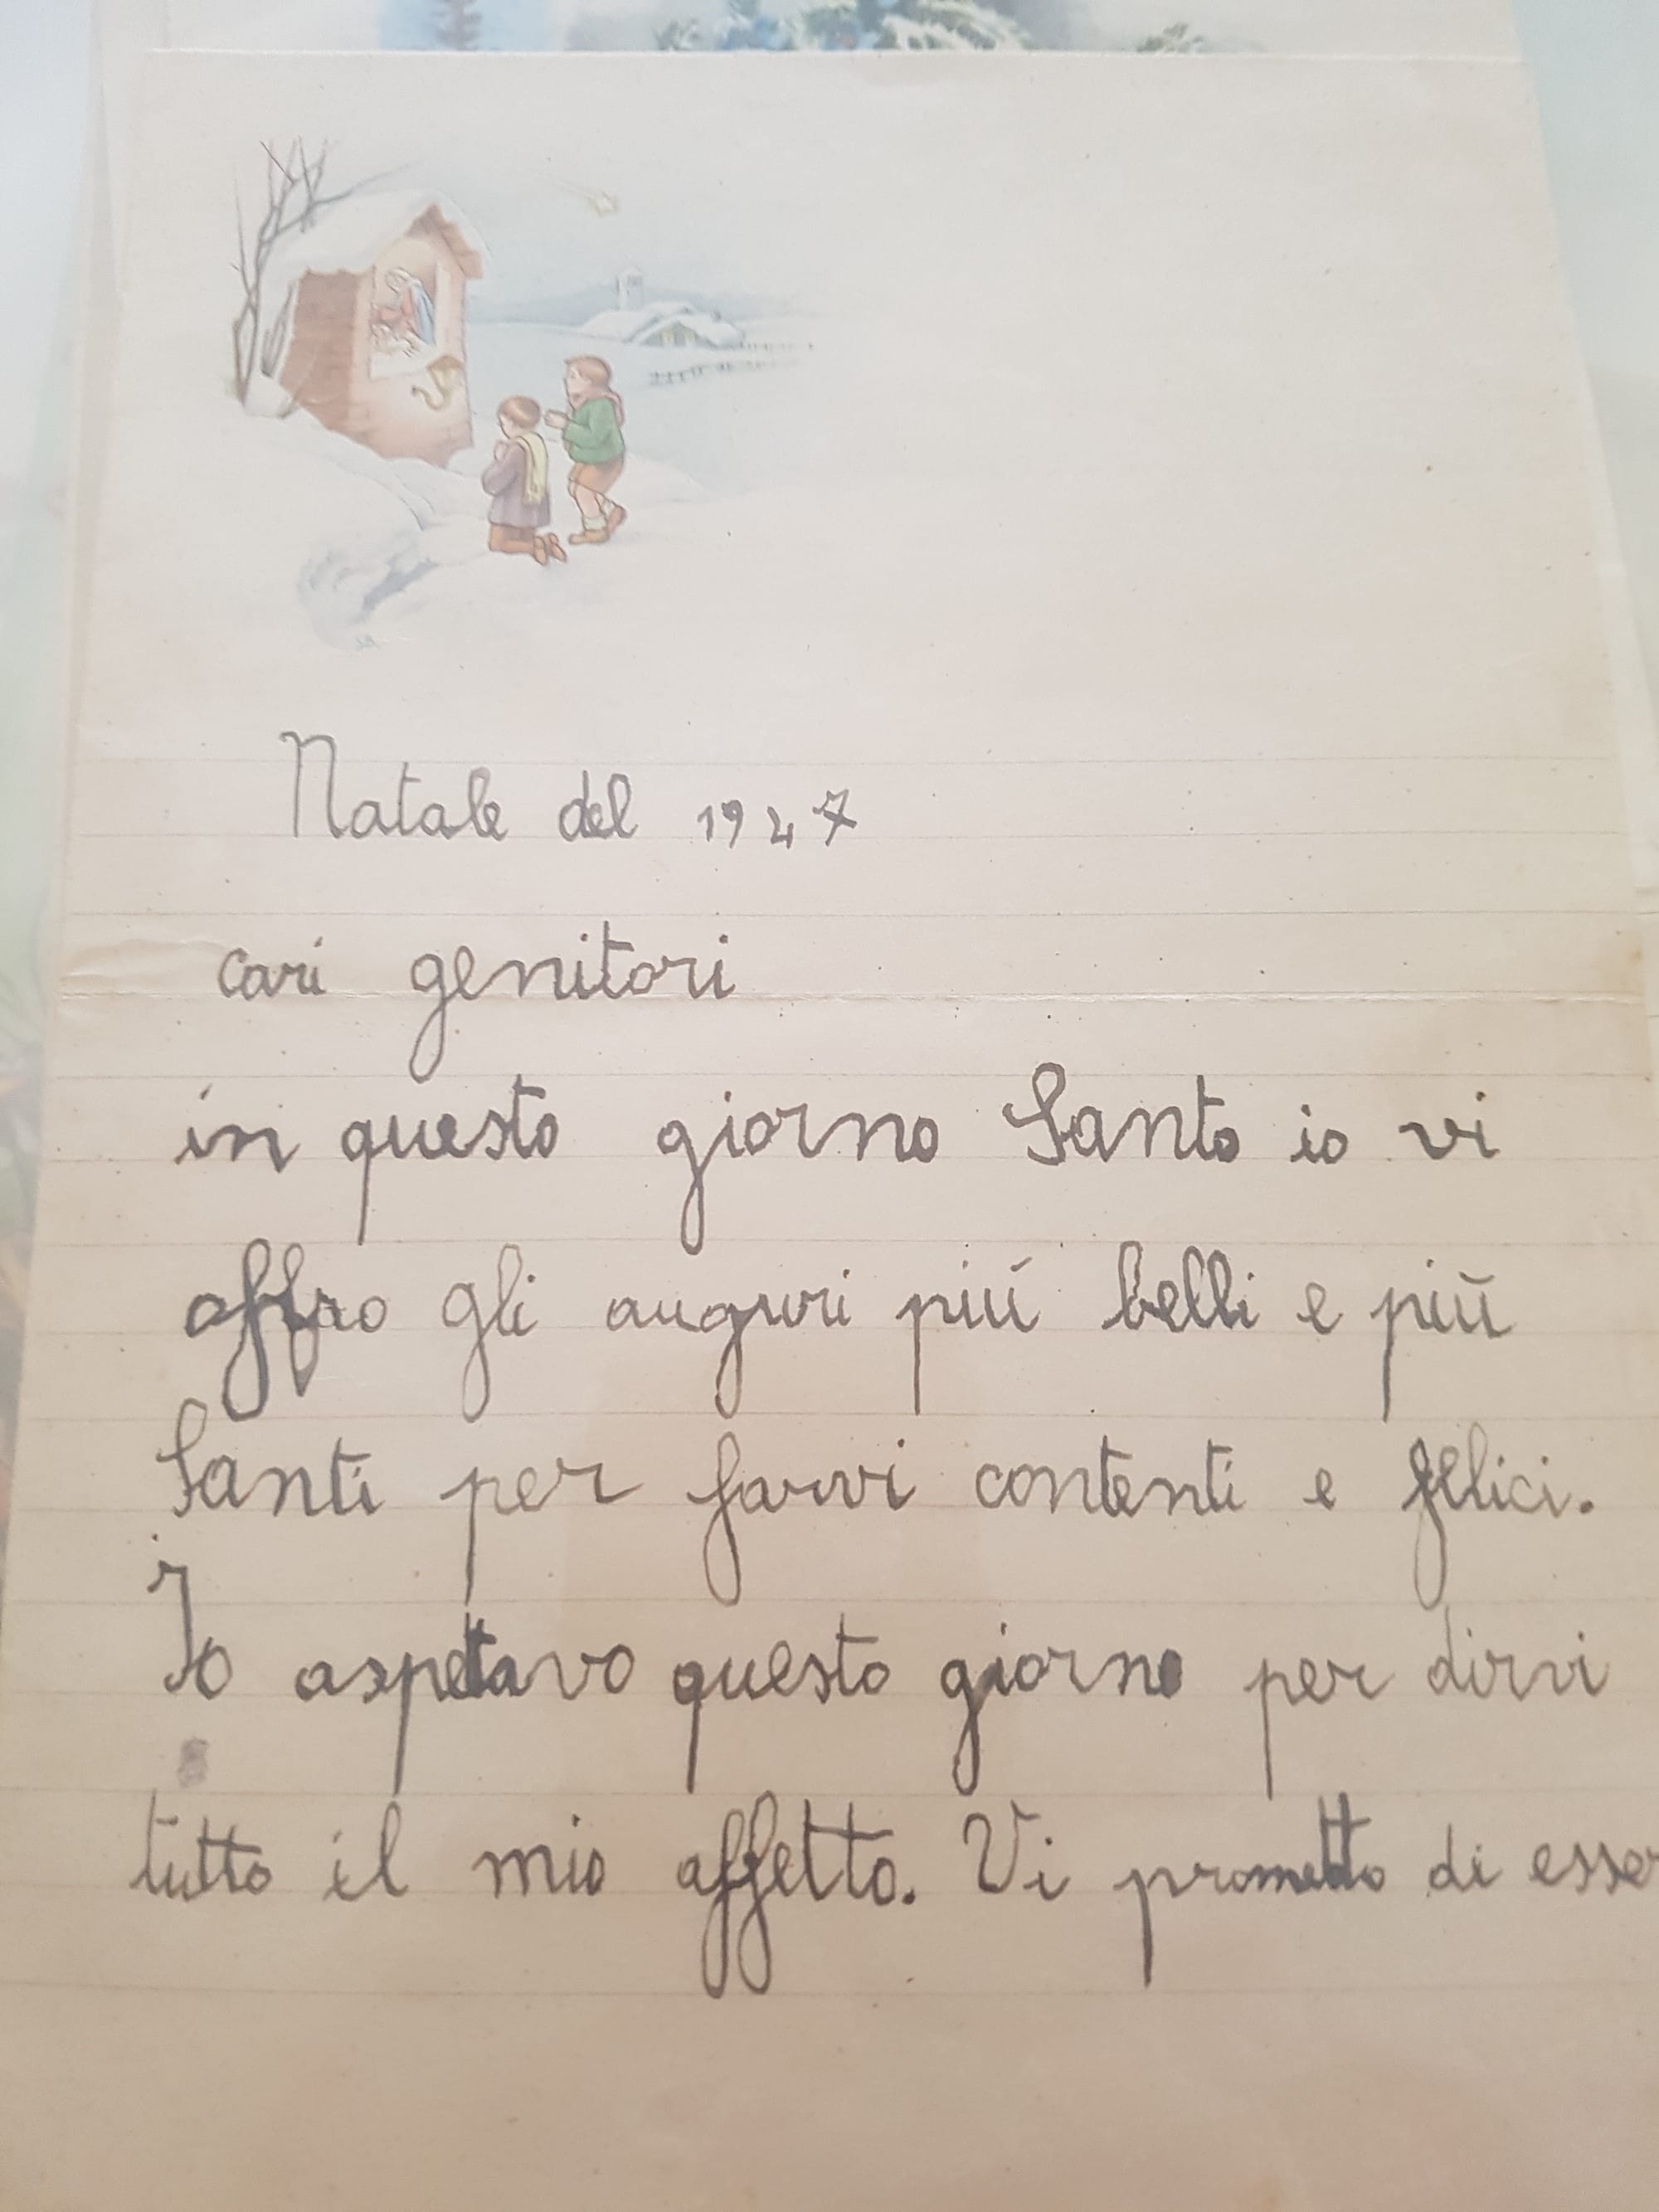 Natale del 1947
cari genitori
in questo giorno Santo io vi
offro gli auguri più belli e più
Santi per farvi contenti e felici.
Io aspettavo questo giorno per dirvi
tutto il mio affetto. Vi prometto di esser